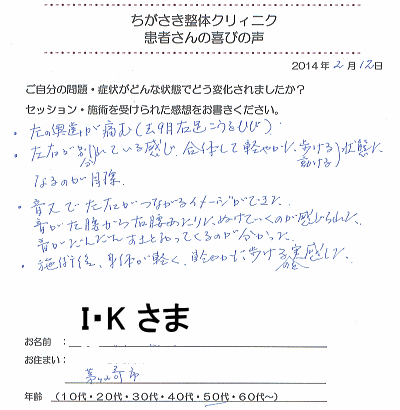 ちがさき整体クリィニク
患者さんの喜びの声
2014年 2月 12日
ご自分の問題・症状がどんな状態でどう変化されましたか？
セッション・施術を受けられた感想をお書きください。
・左の奥歯が痛む（去9月右足こうをひび）
・左右が別れている感じ 合体して軽やかに歩ける 動ける 状態に
なるのが目標
・音叉で左右がつながるイメージができた
音が左腰から右腰あたりにぬけていくのが感じられた
音がだんだん
のが分かった
・施術後、身体が軽く、軽やかに歩ける実感した
I・K さま
お名前：
お住まい：
茅ヶ崎市
年齢 （10代・20代・30代・40代・50代・60代～）